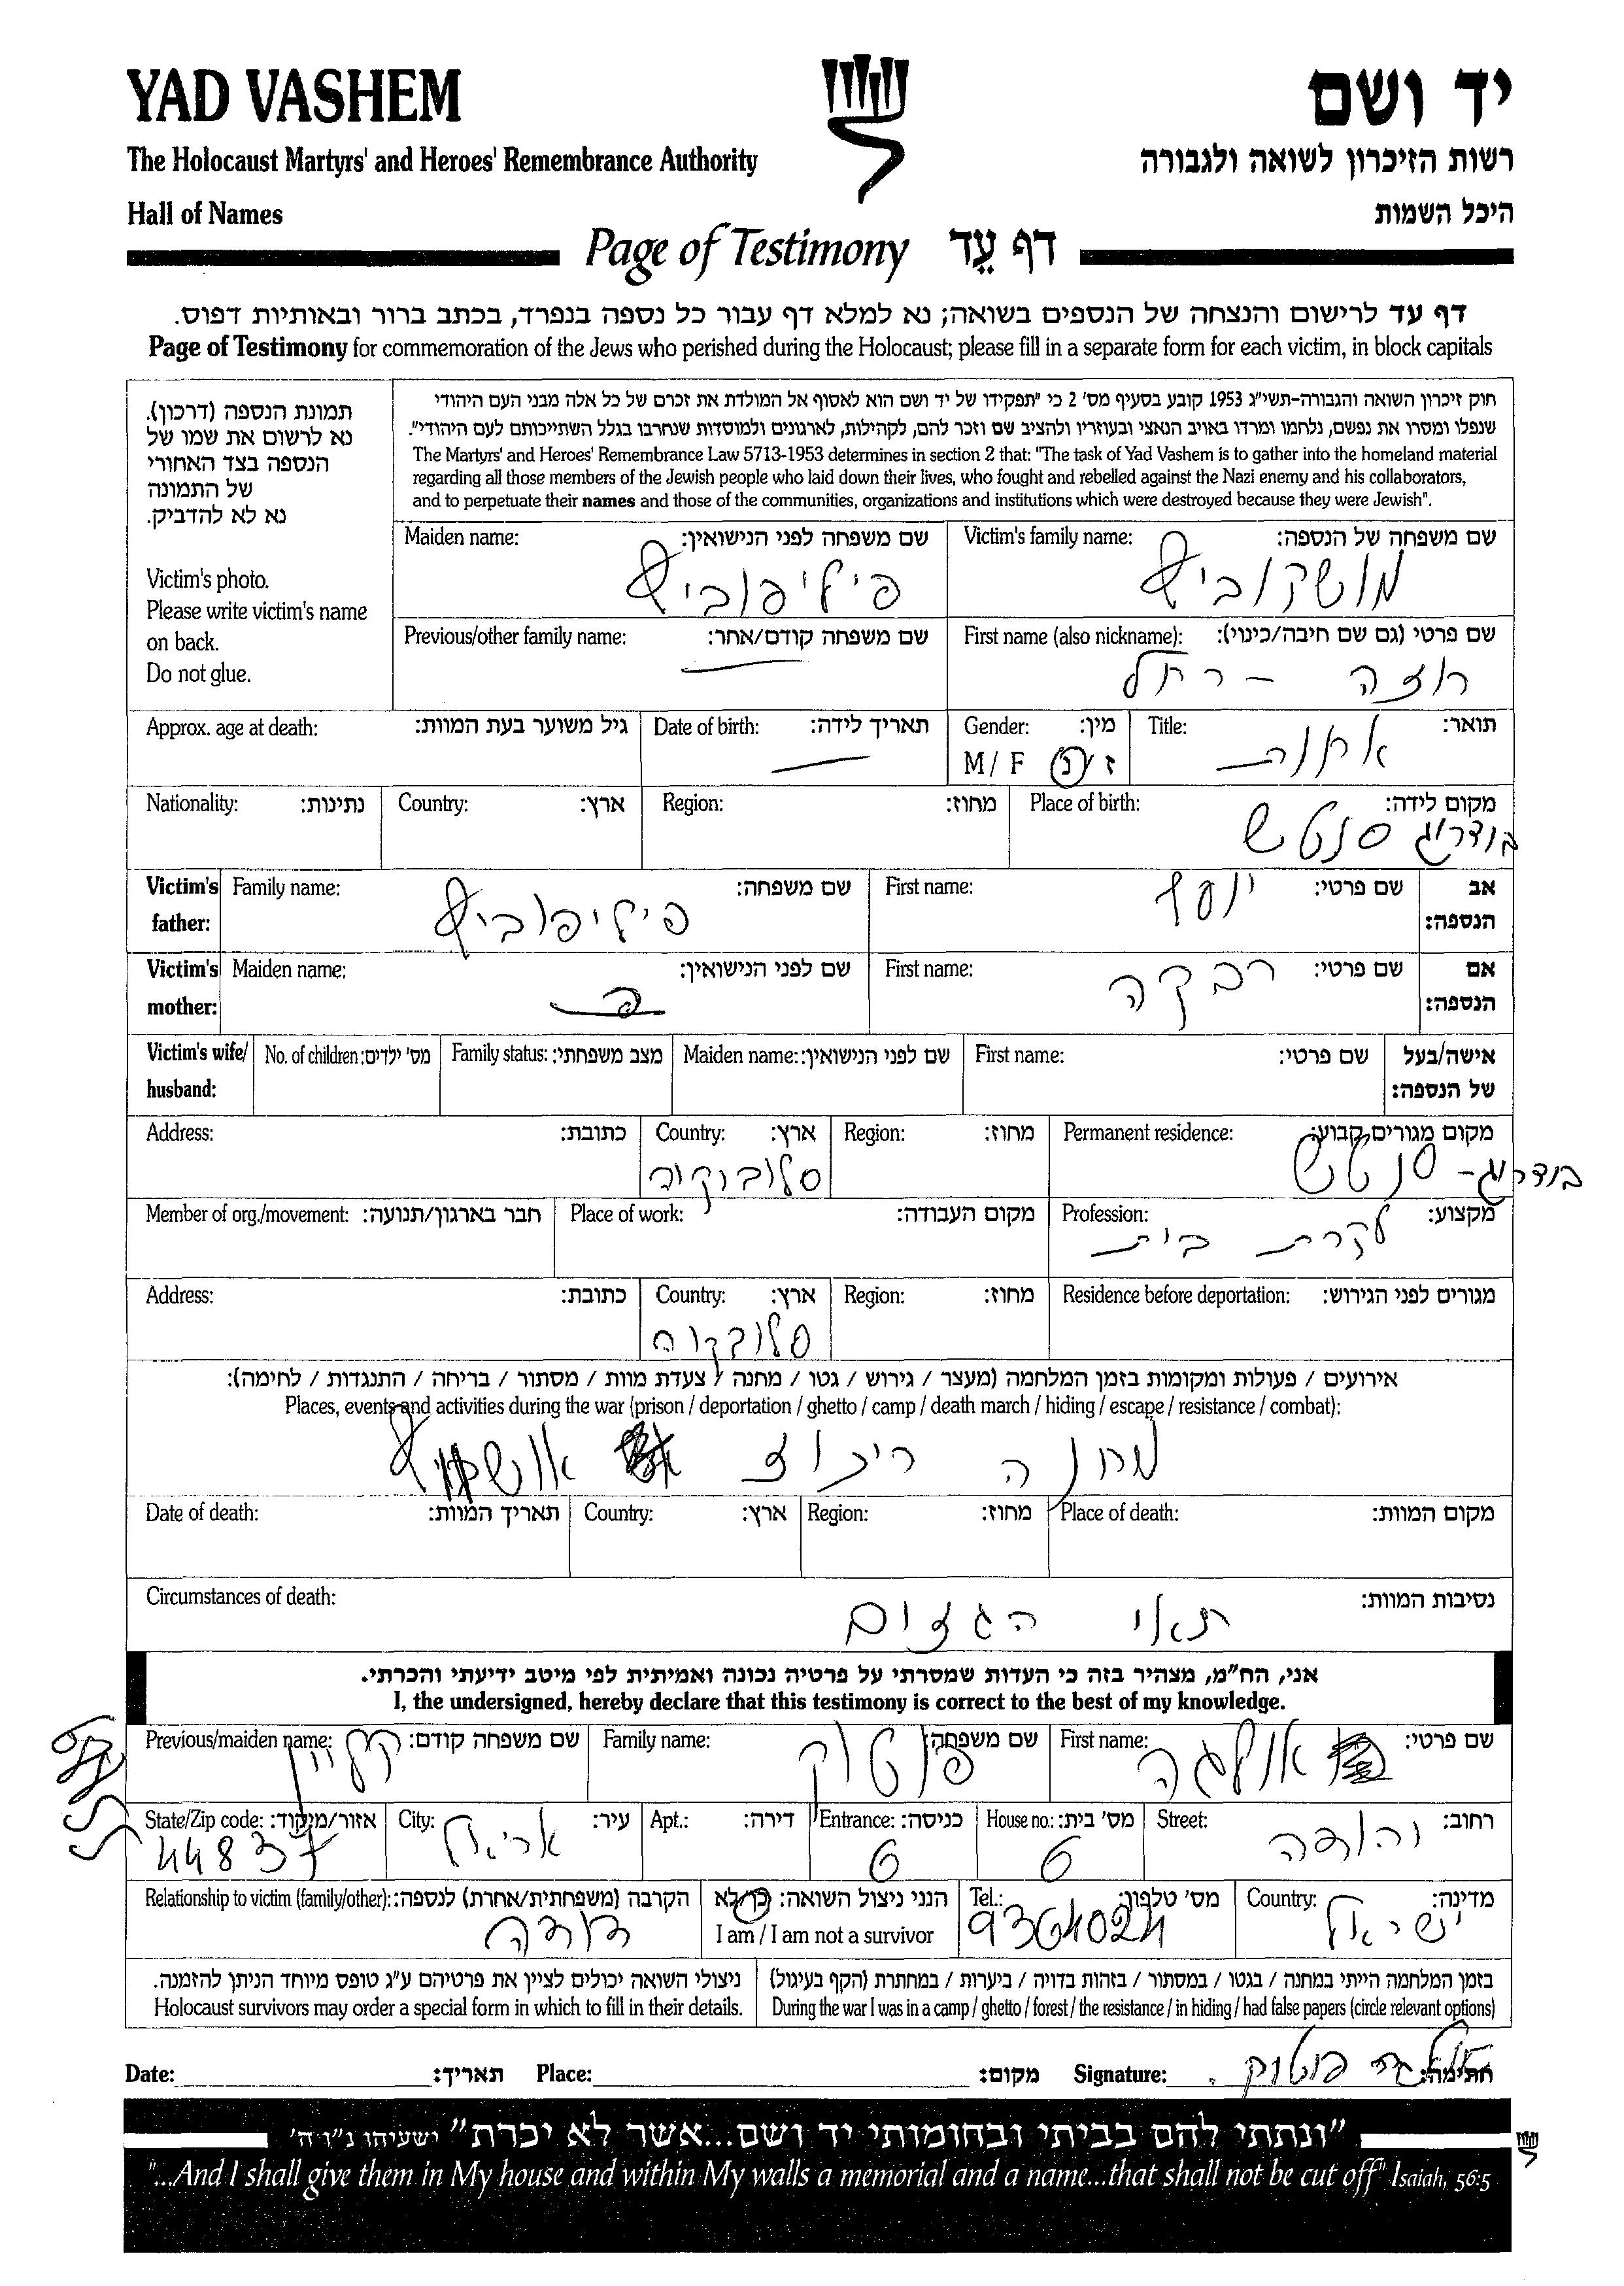 YAD VASHEM
יד ושם
The Holocaust Martyrs' and Heroes' Remembrance Authority
רשות הזיכרון לשואה ולגבורה
Hall of Names
היכל השמות
Page of Testimony דף עֵד
דף עד לרישום והנצחה של הנספים בשואה; נא למלא דף עבור כל נספה בנפרד, בכתב ברור ובאותיות דפוס.
Page of Testimony for commemoration of the Jews who perished during the Holocaust; please fill in a separate form for each victim, in block capitals
תמונת הנספה (דרכון).
נא לרשום את שמו של
הנספה בצד האחורי
של התמונה
נא לא להדביק.
Victim's photo.
Please write victim's name
on back.
Do not glue.
חוק זיכרון השואה והגבורה-תשי"ג 1953 קובע בסעיף מס' 2 כי "תפקידו של יד ושם הוא לאסוף אל המולדת את זכרם של כל אלה מבני העם היהודי
שנפלו ומסרו את נפשם, נלחמו ומרדו באויב הנאצי ובעוזריו ולהציב שם וזכר להם, לקהילות, לארגונים ולמוסדות שנחרבו בגלל השתייכותם לעם היהודי".
The Martyrs' and Heroes' Remembrance Law 5713-1953 determines in section 2 that: "The task of Yad Vashem is to gather into the homeland material
regarding all those members of the Jewish people who laid down their lives, who fought and rebelled against the Nazi enemy and his collaborators,
and to perpetuate their names and those of the communities, organizations and institutions which were destroyed because they were Jewish".
Victim's family name: שם משפחה של הנספה:
מושקוביץ
Maiden name: שם משפחה לפני הנישואין:
פיליפוביץ
First name (also nickname): שם פרטי (גם שם חיבה/כינוי):
רוזה - רחל
Previous/other family name: שם משפחה קודם/אחר:
Title: תואר:
Gender: מין:
M / F ז / נ
Date of birth: תאריך לידה:
Approx. age at death: גיל משוער בעת המוות:
Place of birth: מקום לידה:
בודרוג סנטש
Region: מחוז:
Country: ארץ:
Nationality: נתינות:
Victim's father: אב הנספה:
First name: שם פרטי:
יוסף
Family name: שם משפחה:
פיליפוביץ
Victim's mother: אם הנספה:
First name: שם פרטי:
רבקה
Maiden name: שם לפני הנישואין:
Victim's wife/ husband: אישה/בעל של הנספה:
First name: שם פרטי:
Maiden name: שם לפני הנישואין:
Family status: מצב משפחתי:
No. of children: מס' ילדים:
Permanent residence: מקום מגורים קבוע:
בודרוג - סנטש
Region: מחוז:
Country: ארץ:
סלובקיה
Address: כתובת:
Profession: מקצוע:
עקרת בית
Place of work: מקום העבודה:
Member of org./movement: חבר בארגון/תנועה:
Residence before deportation: מגורים לפני הגירוש:
Region: מחוז:
Country: ארץ:
סלובקיה
Address: כתובת:
אירועים / פעולות ומקומות בזמן המלחמה (מעצר / גירוש / גטו / מחנה / צעדת מוות / מסתור / בריחה / התנגדות / לחימה):
Places, events and activities during the war (prison / deportation / ghetto / camp / death march / hiding / escape / resistance / combat):
מחנה ריכוז אושוויץ
Place of death: מקום המוות:
Region: מחוז:
Country: ארץ:
Date of death: תאריך המוות:
Circumstances of death: נסיבות המוות:
תאי הגזים
אני, הח"מ, מצהיר בזה כי העדות שמסרתי על פרטיה נכונה ואמיתית לפי מיטב ידיעתי והכרתי.
I, the undersigned, hereby declare that this testimony is correct to the best of my knowledge.
First name: שם פרטי:
אולגה
Family name: שם משפחה:
פוטוק
Previous/maiden name: שם משפחה קודם:
קליין
Street: רחוב:
יהודה
House no.: מס' בית:
6
Entrance: כניסה:
6
Apt.: דירה:
City: עיר:
אריאל
State/Zip code: אזור/מיקוד:
44837
Country: מדינה:
ישראל
Tel.: מס' טלפון:
9364024
הנני ניצול השואה: כן/לא
I am / I am not a survivor
Relationship to victim (family/other): הקרבה (משפחתית/אחרת) לנספה:
דודה
בזמן המלחמה הייתי במחנה / בגטו / במסתור / בזהות בדויה / ביערות / במחתרת (הקף בעיגול)
During the war I was in a camp / ghetto / forest / the resistance / in hiding / had false papers (circle relevant options)
ניצולי השואה יכולים לציין את פרטיהם ע"ג טופס מיוחד הניתן להזמנה.
Holocaust survivors may order a special form in which to fill in their details.
Date: תאריך: Place: מקום: Signature: חתימה: אולגה פוטוק
"ונתתי להם בביתי ובחומותי יד ושם...אשר לא יכרת" ישעיהו נ"ו ה'
"...And I shall give them in My house and within My walls a memorial and a name...that shall not be cut off" Isaiah, 56:5